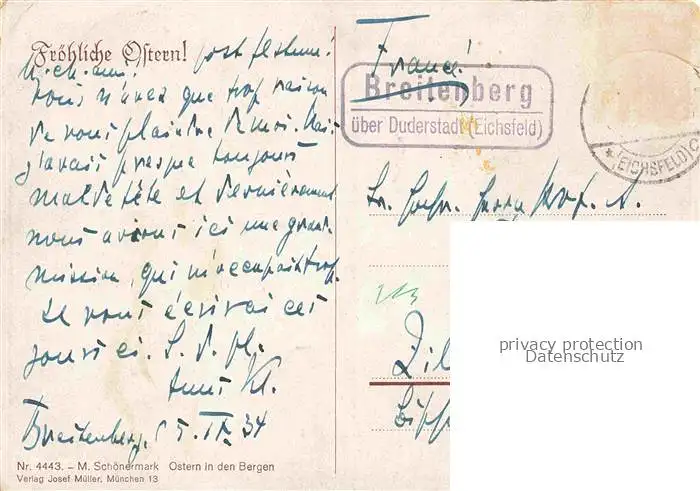 Fröhliche Ostern!
post festum!
vous n'avez que trop raison
de vous plaindre de moi. Mais
j'avais presque toujours
mal de tête et dernièrement
nous avions ici une grande
mission, qui m'occupait trop.
Je vous écrirai ces
jours ci. S. v. pl.
Breitenberg, 5. IV. 34
Nr. 4443. – M. Schönermark Ostern in den Bergen
Verlag Josef Müller, München 13
Francé!
Breitenberg
über Duderstadt (Eichsfeld)
(EICHSFELD)
Herrn Prof. A.
privacy protection
Datenschutz